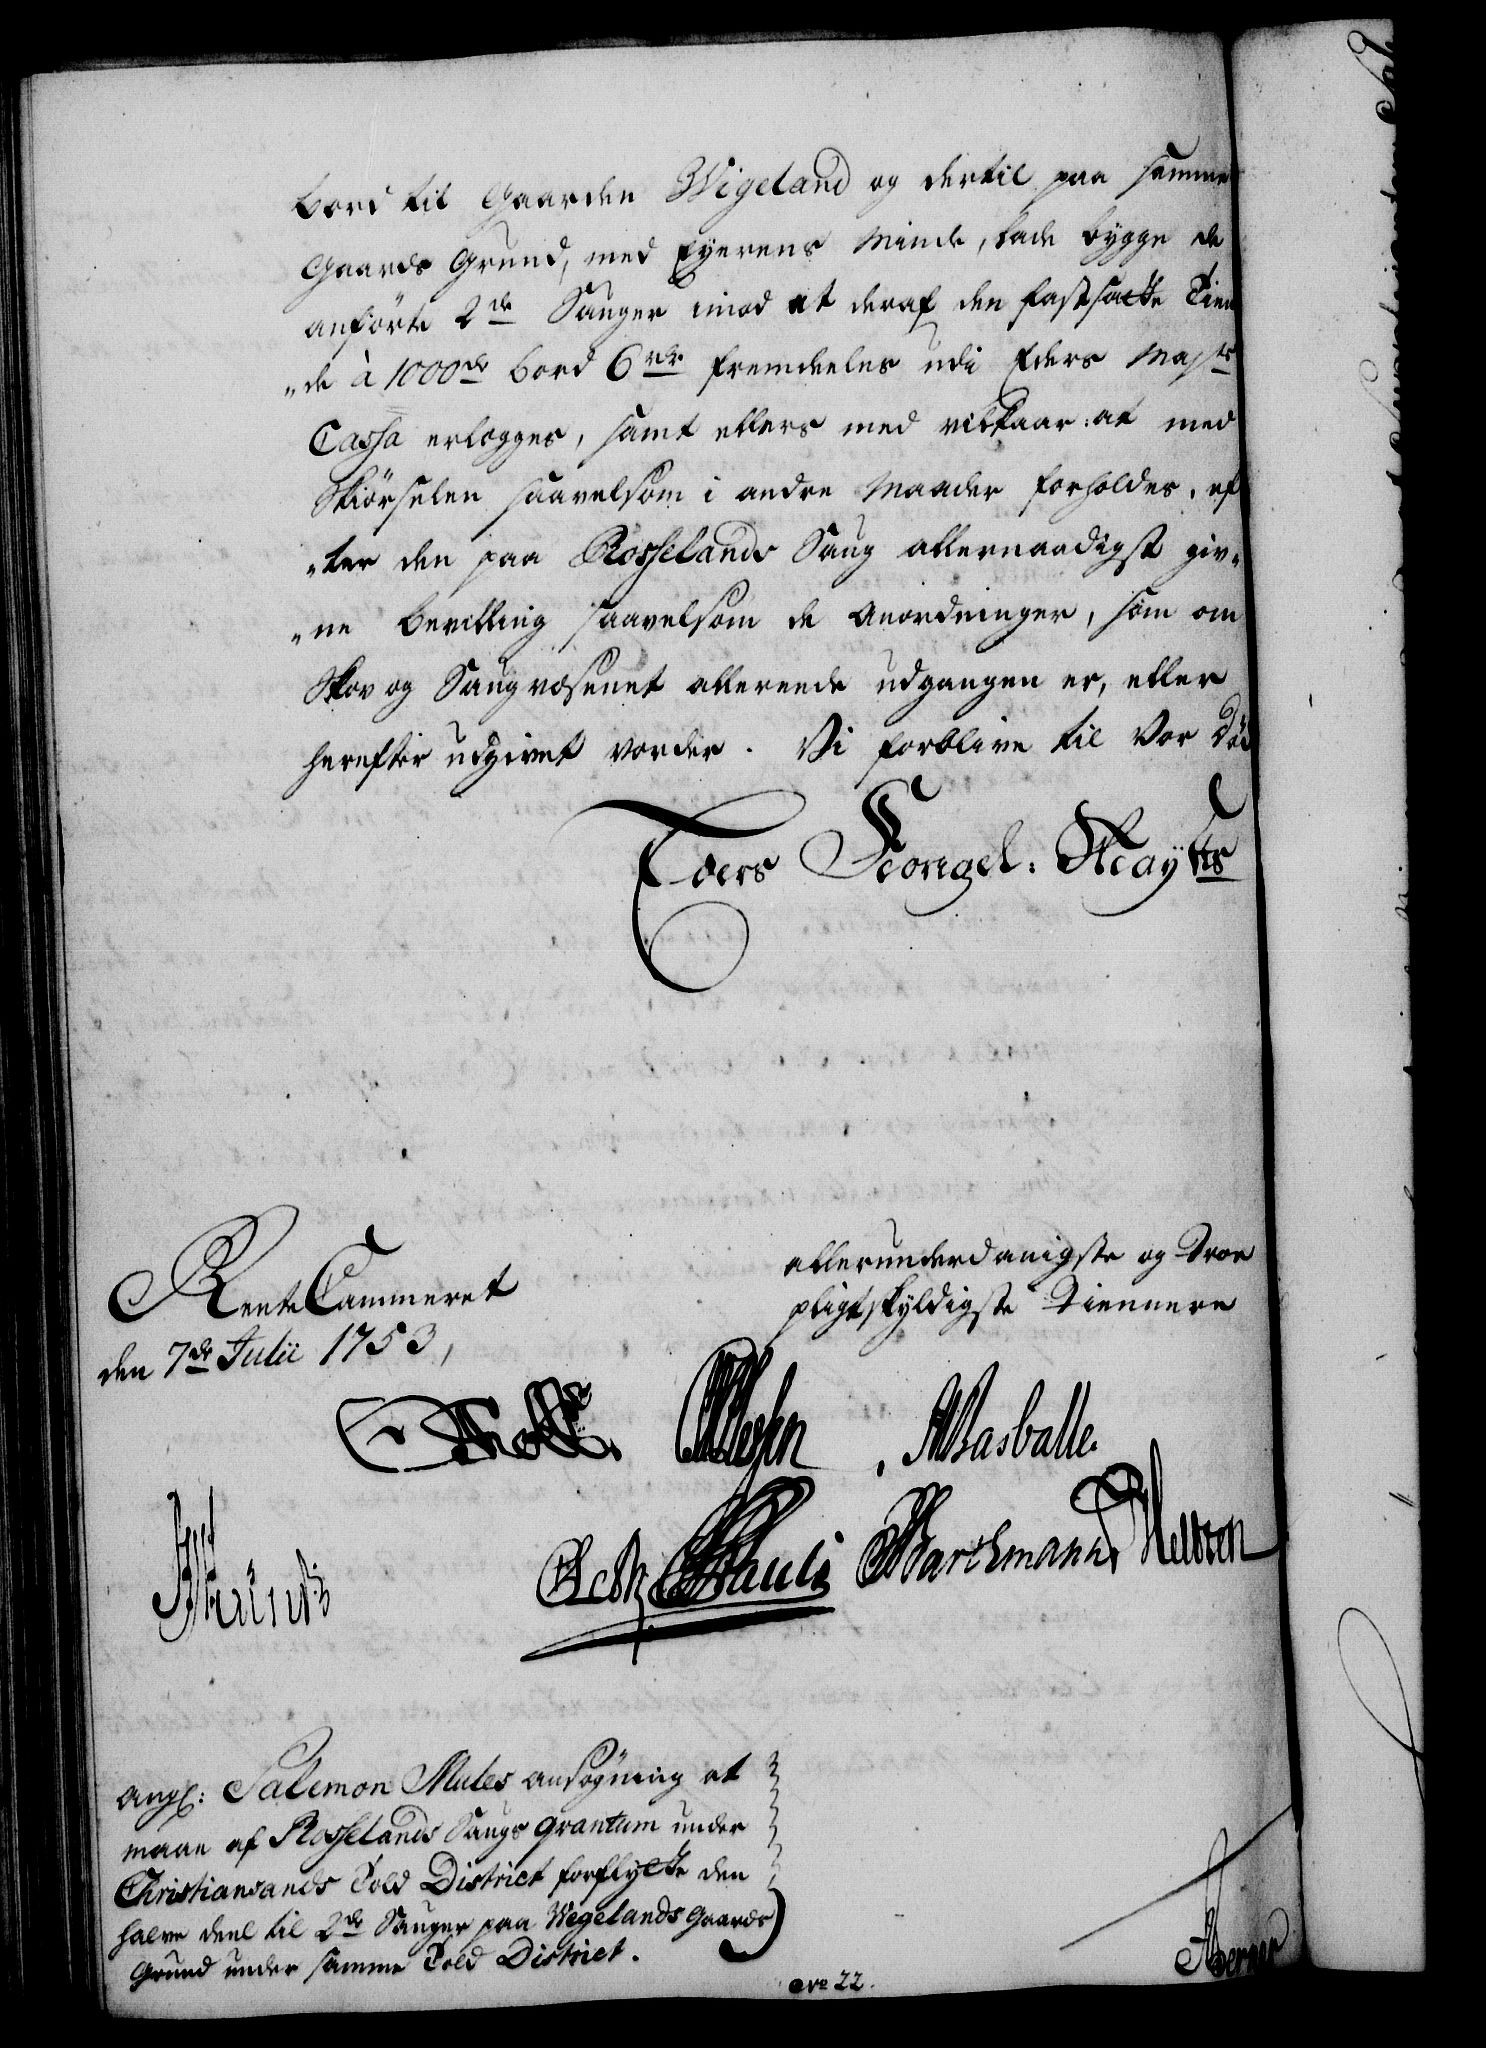 bord til Gaarden Wigeland og dertil paa samme
Gaards Grund, med Eyerens Minde, lade bygge de
anførte 2de Sauger imod at deraf den fastsatte Tien
„de à 1000de bord 6 rdr fremdeeles udi Eders Majts
Cassa erlegges, samt ellers med vilkaar: at med
Skiørselen saavelsom i andre Maader forholdes, ef
„ter den paa Rosselands Saug allernaadigst giv„
„ne bevilling saavelsom de Anordninger, som om
Skov og Saugvæsenet allereede udgangen er, eller
herefter udgivet vorder. Vi forblive til Vor Død
Eders Kongel: Mayts
allerunderdanigste og Troe
pligtskyldigste Tiennere
RenteCammeret
den 7de Julii 1753,
Holst. ABasballe.
Pauli Barchmann
Angl: Salemon Mules ansøgning at
maae af Rosselands Saugs qvantum under
Christiansands Told District forflytte den
halve deel til 2de Sauger paa Wegelands Gaards
Grund under samme Told District.
No 22.